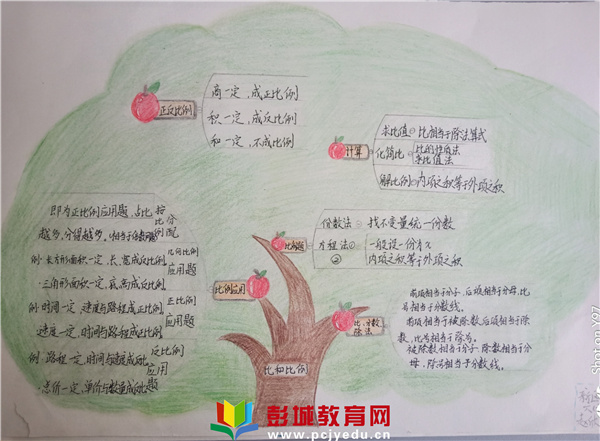 正反比例
商一定，成正比例
积一定，成反比例
和一定，不成比例
计算
求比值 比相当于除法算式
化简比 比的性质法
求比值法
解比例 内项之积等于外项之积
即为正比例应用题 占比 按比分配
越多，分得越多。相当于
例：长方形面积一定，长、宽成反比例
三角形面积一定，底、高成反比例
反比例应用题
例：时间一定，速度与路程成正比例
速度一定，时间与路程成正比例
正比例应用题
例：路程一定，时间与速度成反比
总价一定，单价与数量成反比
反比例应用题
比例应用
比例题
份数法 找不变量统一份数
方程法① 一般设一份为x
② 内项之积等于外项之积
比、分数、除法
前项相当于分子，后项相当于分母，比
号相当于分数线。
前项相当于被除数，后项相当于除
数，比号相当于除号。
被除数相当于分子，除数相当于分
母，除号相当于分数线。
比和比例
彭城教育网
www.pcjyedu.cn
Shot on Y97